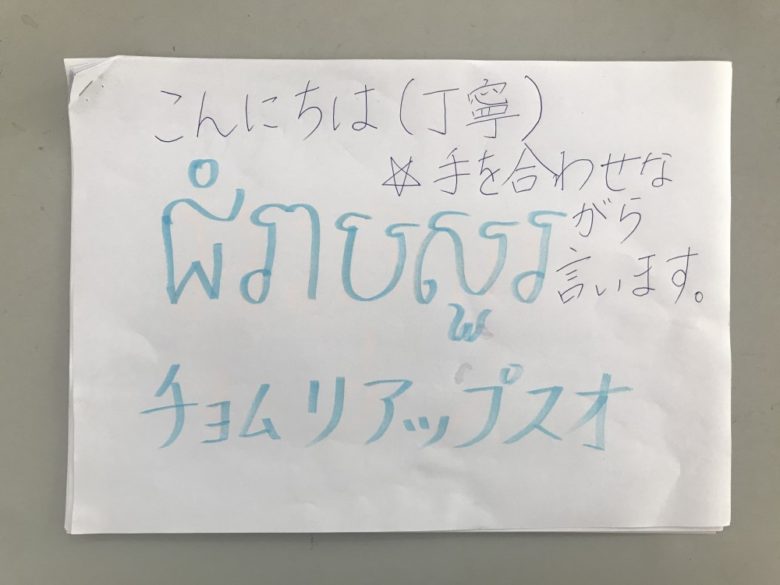 こんにちは(丁寧)
☆手を合わせな
がら
言います。
ជំរាបសួរ
チョムリアップスオ